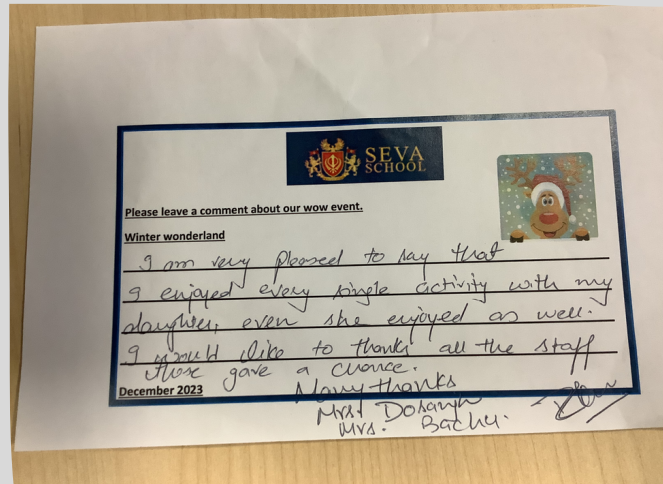 SEVA
SCHOOL
Please leave a comment about our wow event.
Winter wonderland
I am very pleased to say that
I enjoyed every single activity with my
daughter, even she enjoyed as well.
I would like to thanks all the staff
those gave a chance.
December 2023
Many thanks
Mrs Dosanjh
Mrs. Bachu.